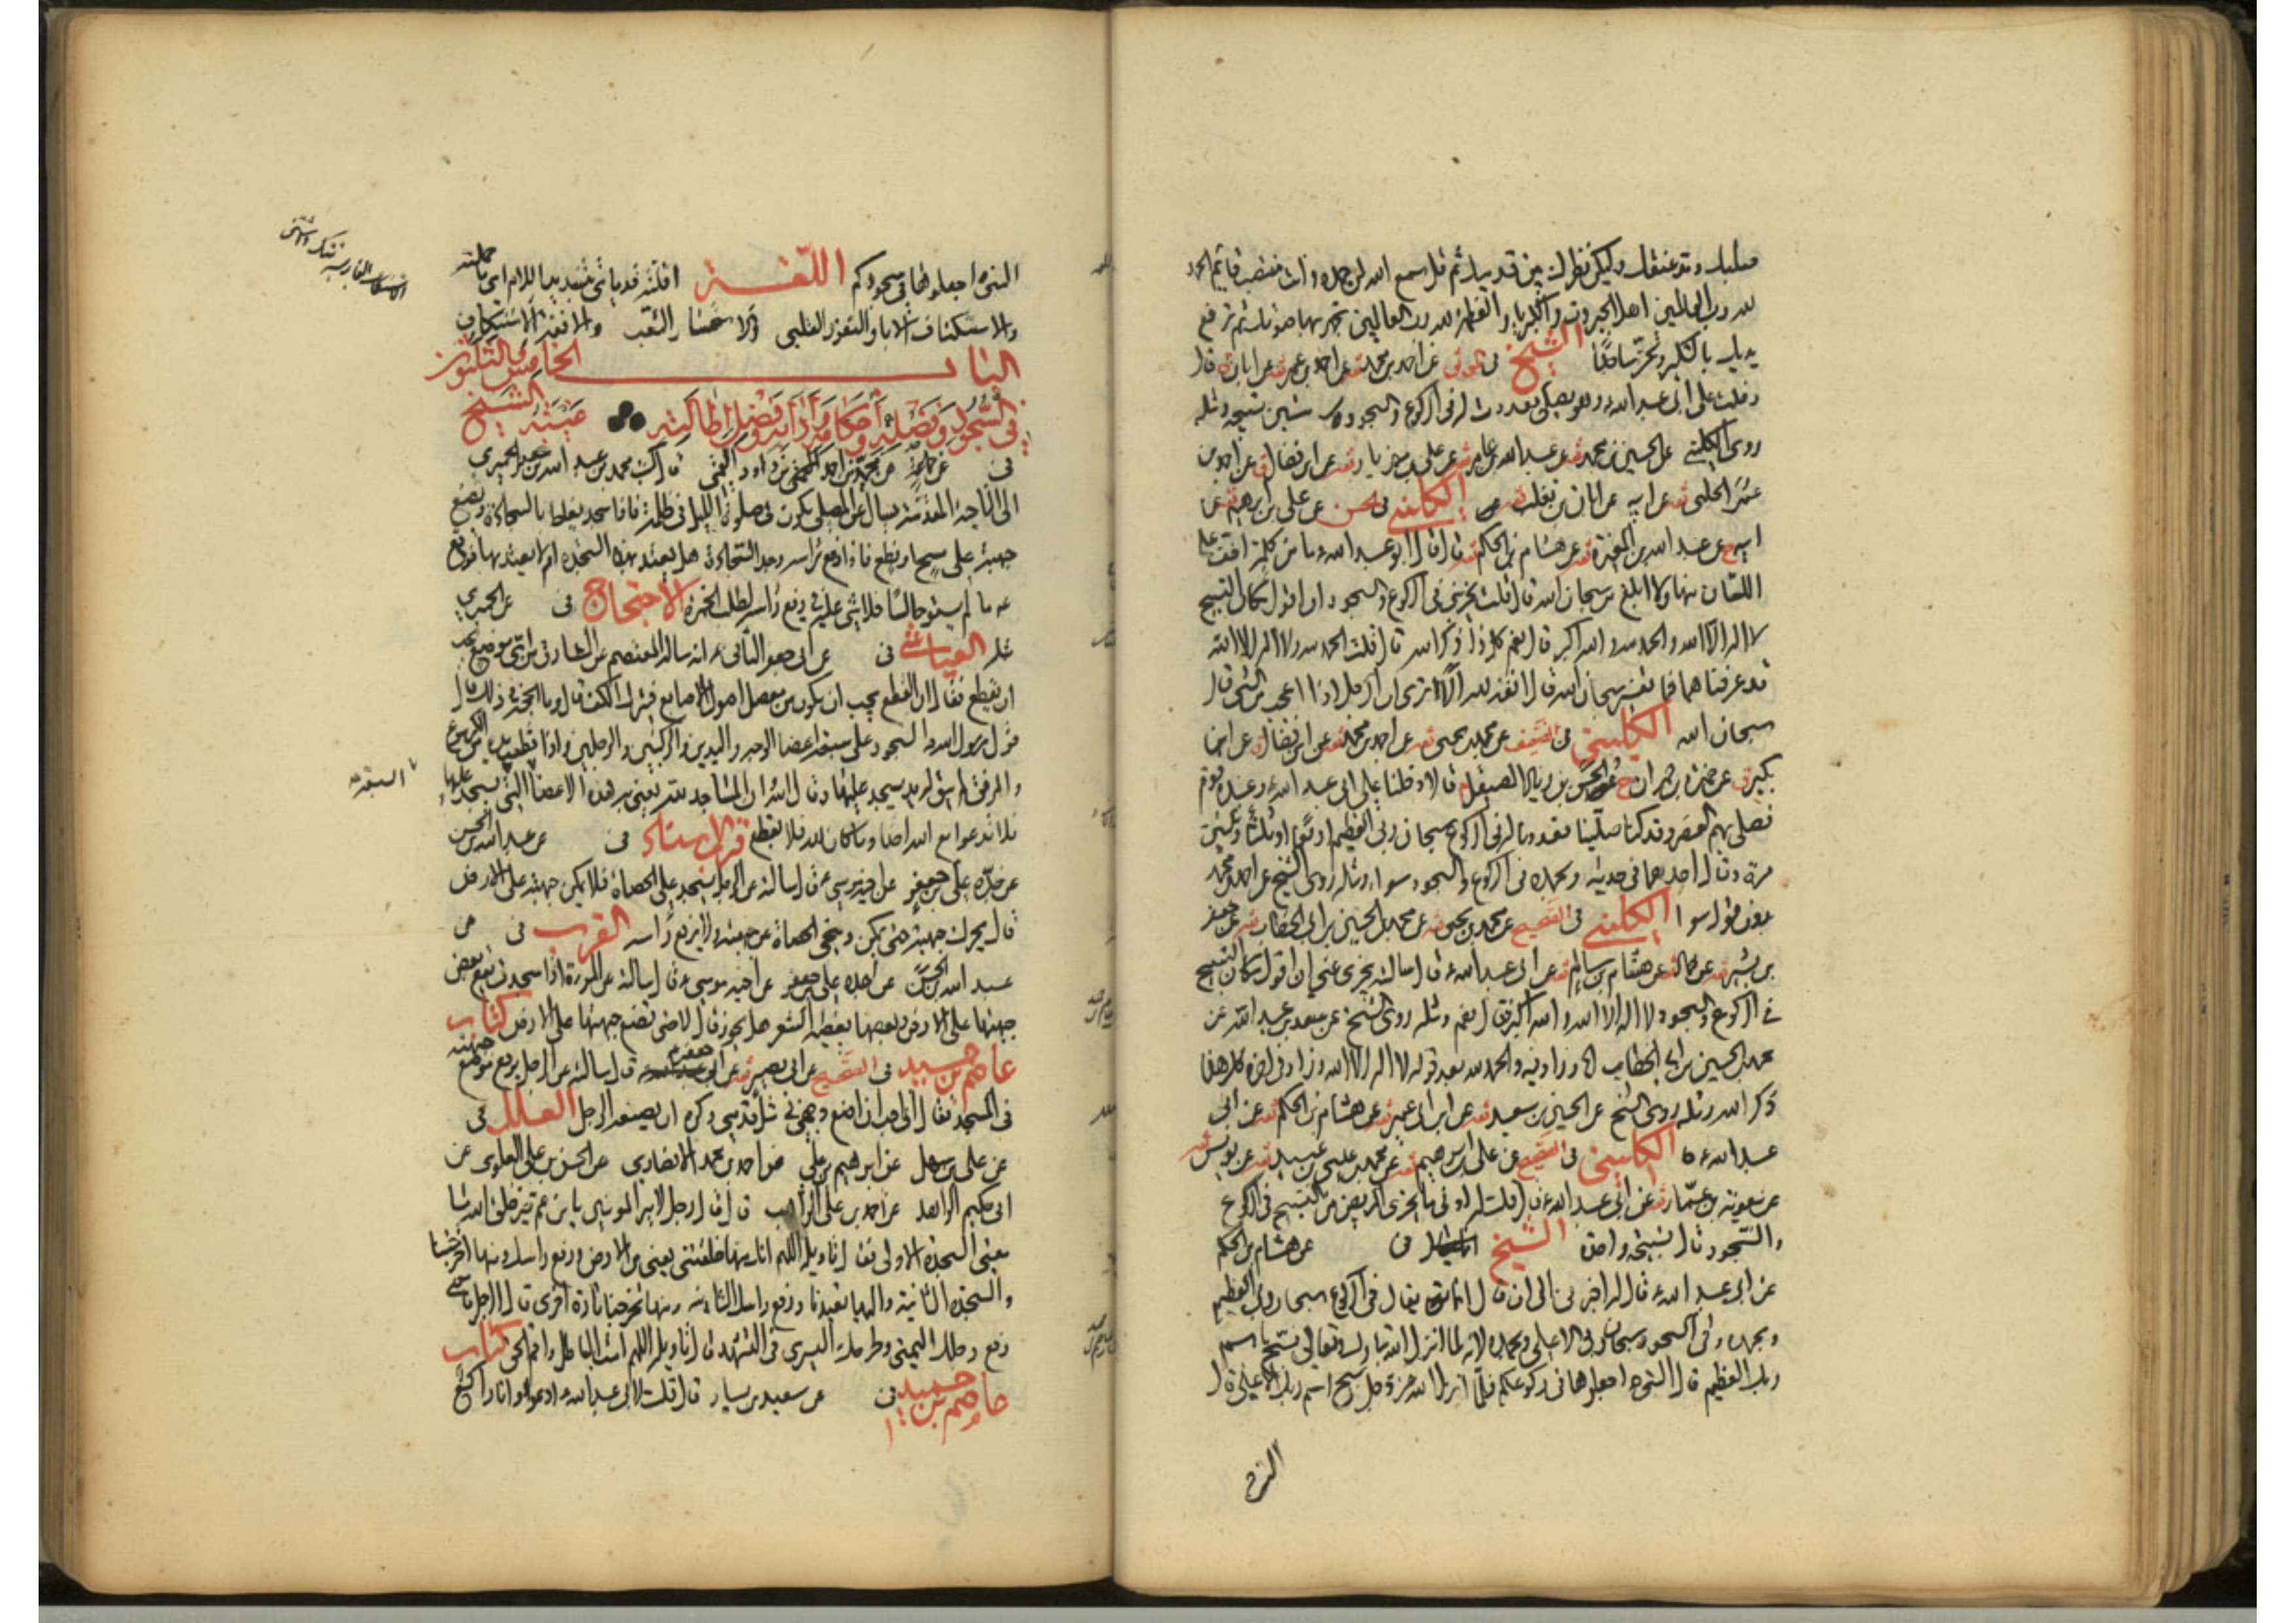 صلبك ومد عنقك وليكن نظرك بين قدميك ثم قل سمع الله لمن حمده وانت منتصب قايم الحمد
لله رب العالمين اهل الجبروت والكبرياء والعظمة لله رب العالمين تجهر بها صوتك ثم ترفع
يديك بالتكبير وتخر ساجدا الشيخ فى عن احمد بن محمد عن احمد بن عمر عن ابان قال
دخلت على ابى عبد الله ع وهو يصلى فعددت له فى الركوع والسجود ستين تسبيحة ومثله
روى الكلينى عن الحسين بن محمد عن عبد الله بن عامر عن على بن مهزيار عن ابن فضال عن احمد بن
عمر الحلبى عن ابيه عن ابان بن تغلب الكلينى فى الحسن عن على بن ابرهيم عن
ابيه عن عبد الله بن المغيرة عن هشام بن الحكم قال قال ابو عبد الله ع ما من كلمة اخف على
اللسان منها ولا ابلغ من سبحان الله قال قلت يجزينى فى الركوع والسجود ان اقول مكان التسبيح
لا اله الا الله والحمد لله والله اكبر قال نعم كل ذا ذكر الله قال قلت الحمد لله ولا اله الا الله
قد عرفناهما فما تفسير سبحان الله قال انفة لله الا ترى ان الرجل اذا اعجب من الشئ قال
سبحان الله الكلينى فى عن محمد بن يحيى عن احمد بن محمد عن ابن فضال عن ابن
بكير عن حمزة بن حمران والحسن بن زياد الصيقل قالا دخلنا على ابى عبد الله ع وعنده قوم
فصلى بهم العصر وقد كنا صلينا فعددنا له فى الركوع سبحان ربى العظيم اربعا او ثلثا وثلثين
مرة وقال احدهما فى حديثه وبحمده فى الركوع والسجود سواء ومثله روى الشيخ عن احمد بن محمد
بدون قوله سواء الكلينى فى الصحيح عن محمد بن يحيى عن محمد بن الحسين بن ابى الخطاب عن جعفر
بن بشير عن حماد عن هشام بن سالم عن ابى عبد الله ع قال سالته يجزى عنى ان اقول مكان التسبيح
فى الركوع والسجود لا اله الا الله والله اكبر قال نعم ومثله روى الشيخ عن سعد بن عبد الله عن
محمد بن الحسين بن ابى الخطاب الا وزاد فيه والحمد لله بعد قوله لا اله الا الله وزاد فى اخره كل هذا
ذكر الله ومثله روى الشيخ عن الحسين بن سعيد عن ابن ابى عمير عن هشام بن الحكم عن ابى
عبد الله ع الكلينى فى الصحيح عن على بن ابرهيم عن محمد بن عيسى بن عبيد عن يونس
عن معوية بن عمار عن ابى عبد الله ع قال قلت له ادنى ما يجزى المريض من التسبيح فى الركوع
والسجود قال تسبيحة واحدة الشيخ فى عن هشام بن الحكم
عن ابى عبد الله ع قال الى ان قال يقال فى الركوع سبحان ربى العظيم
وبحمده وفى السجود سبحان ربى الاعلى وبحمده لانه لما انزل الله تبارك وتعالى فسبح باسم
ربك العظيم قال النبى ص اجعلوها فى ركوعكم فلما انزل الله عز وجل سبح اسم ربك الاعلى قال
النبى
النبى ص اجعلوها فى سجودكم اللغة
والاستنكاف الاباء والتعزز
الباب الخامس والثلثون
فى السجود وفضله واحكامه وادابه وفضل اطالته الشيخ
فى عن جماعة عن محمد بن احمد بن داود القمى قال كتب محمد بن عبد الله بن جعفر الحميرى
الى الناحية المقدسة يسال عن المصلى يكون فى صلوة الليل فى ظلمة فاذا سجد يغلط بالسجادة ويضع
جبهته على مسح او نطع فاذا رفع راسه وجد السجادة هل يعتد بهذه السجدة ام لا يعتد بها فوقع
ع ما لم يستو جالسا فلا شئ عليه فى رفع راسه لطلب الخمرة الاحتجاج فى عن الحميرى
مثله العياشى فى عن ابى جعفر الثانى ع انه ساله المعتصم عن السارق من اى موضع يجب
ان يقطع فقال ان القطع يجب ان يكون من مفصل اصول الاصابع فيترك الكف قال وما الحجة فى ذلك قال
قول رسول الله ص السجود على سبعة اعضاء الوجه واليدين والركبتين والرجلين واذا قطعت يده من الكرسوع
او المرفق لم يبق له يد يسجد عليها وقال الله ان المساجد لله يعنى به هذه الاعضاء التى يسجد عليها
فلا تدعوا مع الله احدا وما كان لله فلا يقطع قرب الاسناد فى عن عبد الله بن الحسن
عن جده على بن جعفر عن اخيه موسى ع قال سالته عن الرجل يسجد على الحصاة فلا يمكن جبهته على الارض
قال يحرك جبهته حتى يمكن وينحى الحصاة عن جبهته ولا يرفع راسه القرب فى عن
عبد الله بن الحسن عن جده على بن جعفر عن اخيه موسى ع قال سالته عن المراة اذا سجدت يقع بعض
جبهتها على الارض وبعضها يغطيه الشعر هل يجوز قال لا حتى تضع جبهتها على الارض كتاب
عاصم بن حميد فى الصحيح عن ابى بصير عن ابى جعفر ع قال سالته عن الرجل يرفع موضع جبهته
فى المسجد فقال انى احب ان اضع وجهى فى مثل قدمى وكره ان يضعه الرجل العلل فى
عن على بن سهل عن ابرهيم بن على عن احمد بن محمد الانصارى عن الحسن بن على العلوى عن
ابى حكيم الزاهد عن احمد بن على الراهب قال قال رجل لامير المومنين يا بن عم خير خلق الله ما
معنى السجدة الاولى فقال تاويله اللهم انك منها خلقتنى يعنى من الارض ورفع راسك ومنها اخرجتنا
والسجدة الثانية واليها تعيدنا ورفع راسك الثانية ومنها تخرجنا تارة اخرى قال الرجل ما معنى
رفع رجلك اليمنى وطرحك اليسرى فى التشهد قال تاويله اللهم امت الباطل واقم الحق كتاب
عاصم بن حميد فى عن سعيد بن يسار قال قلت لابى عبد الله ع ادعو وانا راكع